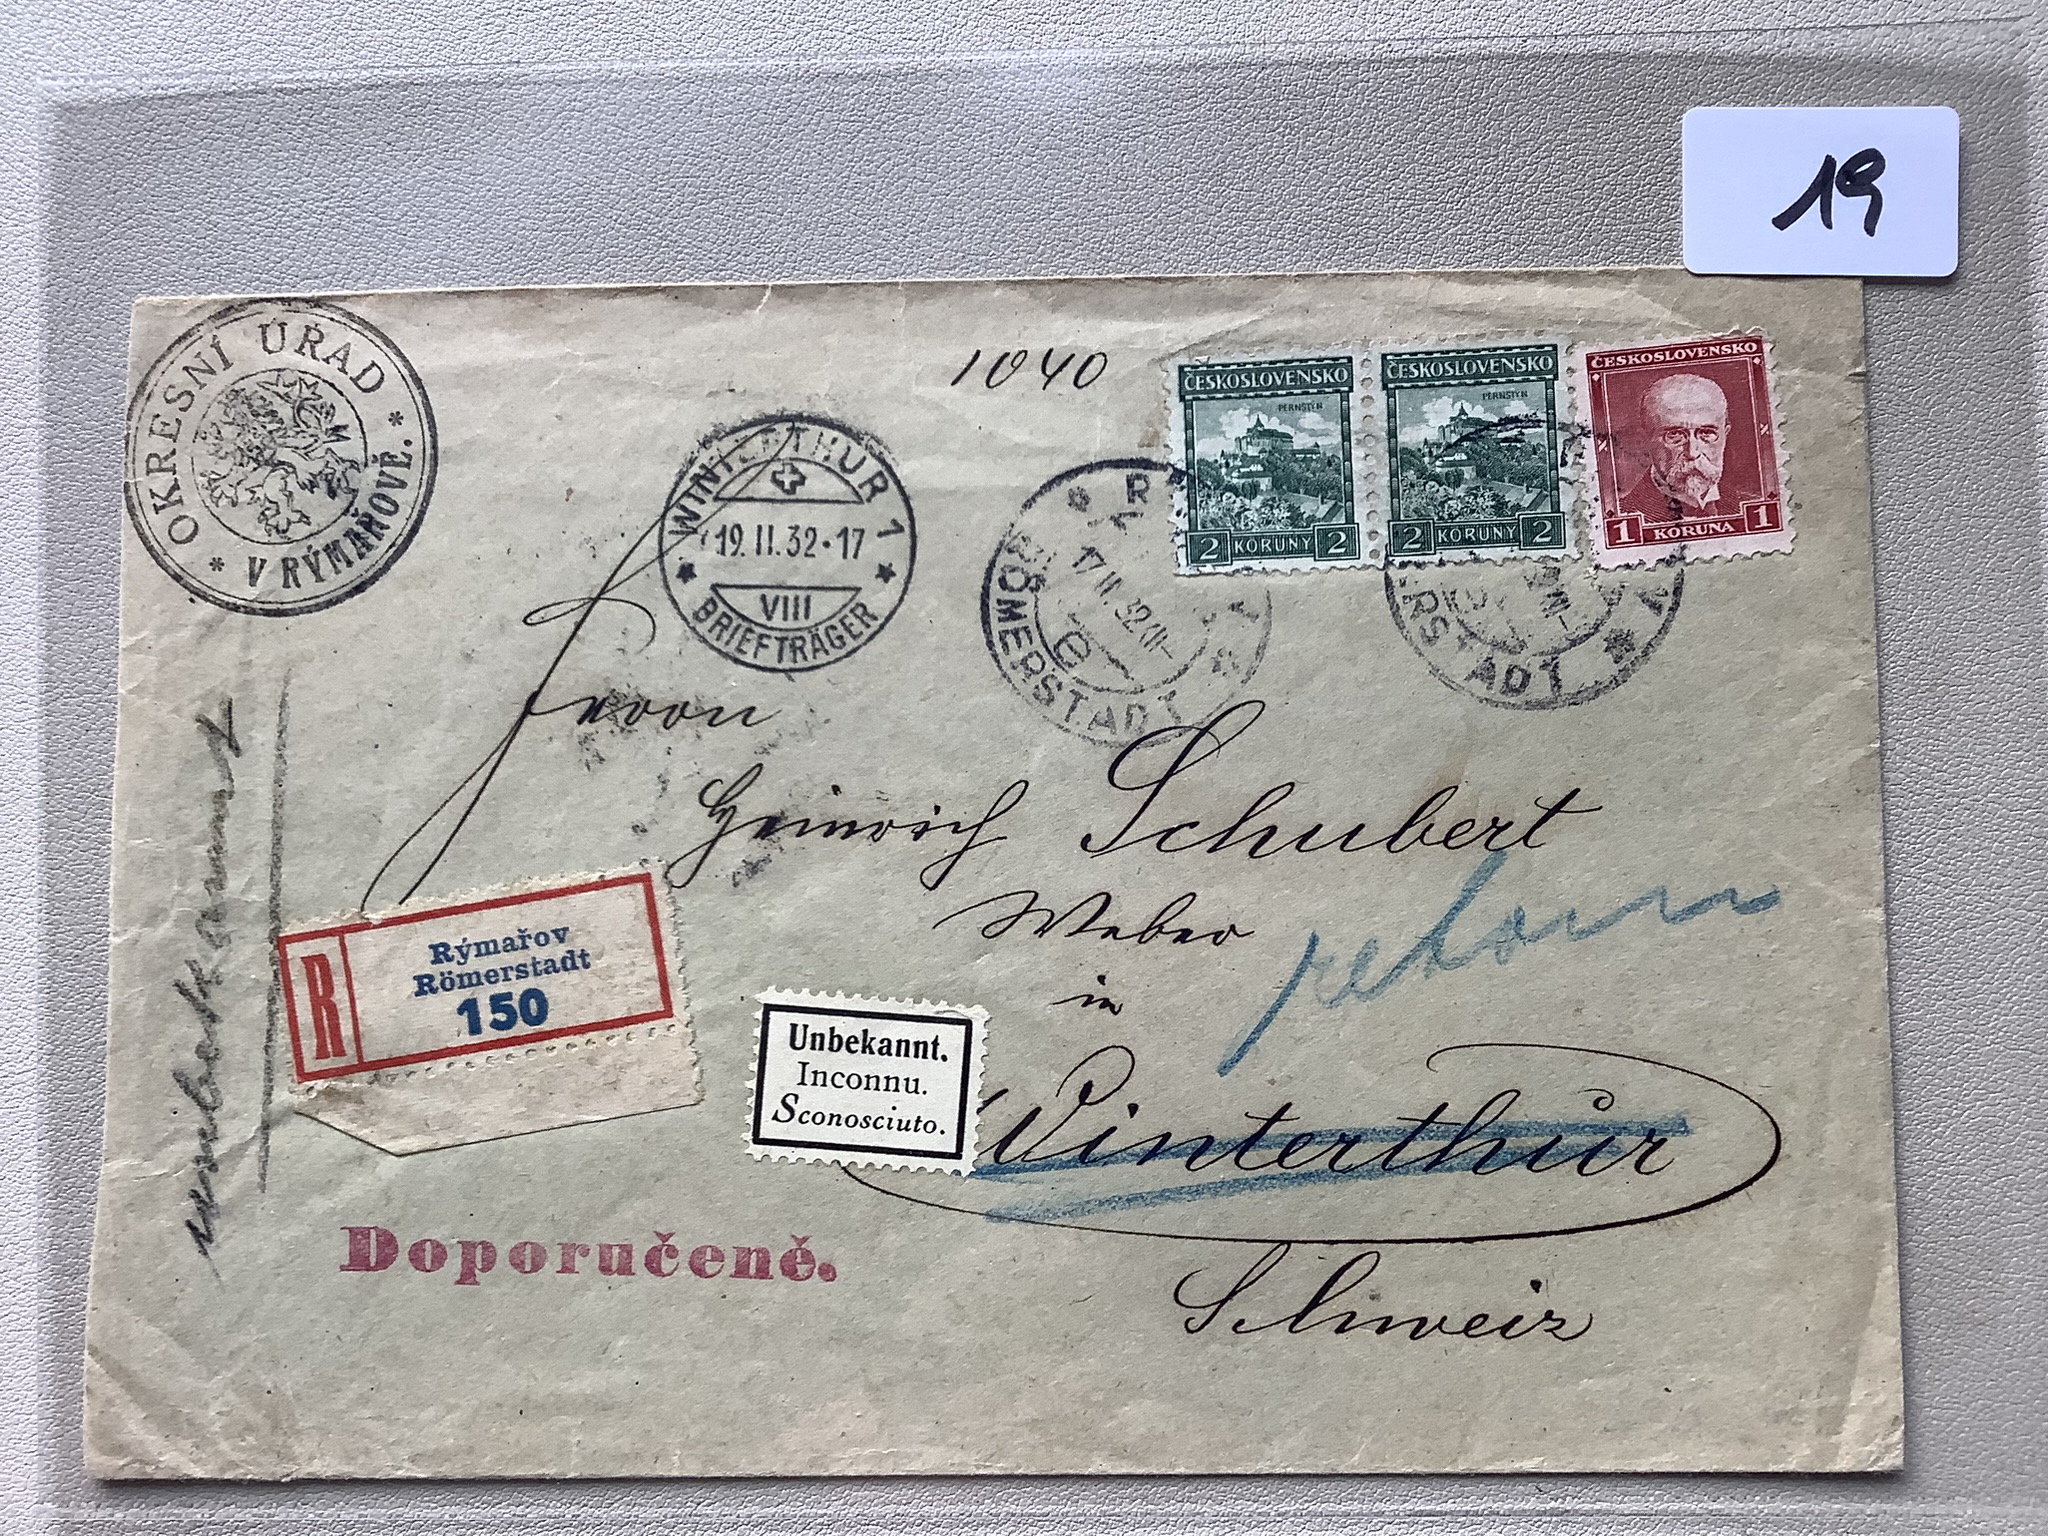 19
OKRESNÍ ÚŘAD
* V RÝMAŘOVĚ. *
1040
WINTERTHUR 1
19.II.32-17
VIII
BRIEFTRÄGER
ČESKOSLOVENSKO
PERNŠTÝN
2 KORUNY 2
ČESKOSLOVENSKO
PERNŠTÝN
2 KORUNY 2
ČESKOSLOVENSKO
1 KORUNA 1
17.II.32
e
RÖMERSTADT
RSTADT
Herrn
Heinrich Schubert
Weber
in
Winterthur
Schweiz
retour
unbekannt
R
Rýmařov
Römerstadt
150
Unbekannt.
Inconnu.
Sconosciuto.
Doporučeně.